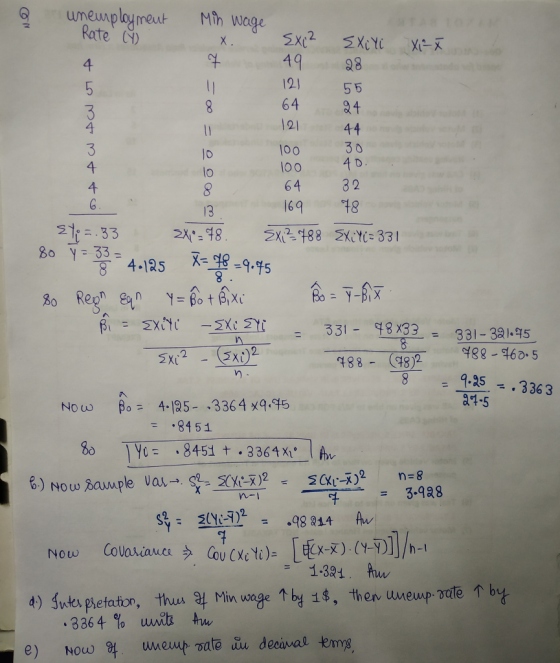 Q unemployment Min wage
Rate (Y) x. Σxi² ΣxiYi xi²-x̄
4 7 49 28
5 11 121 55
3 8 64 24
4 11 121 44
3 10 100 30
4 10 100 40.
4 8 64 32
6 13 169 78
ΣYi = .33 Σxi = 78. Σxi² = 788 ΣxiYi = 331
So Ȳ = 33/8 = 4.125 x̄ = 78/8. = 9.75
So Regⁿ Eqⁿ Y = β̂0 + β̂1xi β̂0 = Ȳ - β̂1x̄
β̂1 = (ΣxiYi - Σxi ΣYi/n) / (Σxi² - (Σxi)²/n.) = (331 - 78×33/8) / (788 - (78)²/8) = (331 - 321.75) / (788 - 760.5)
= 9.25/27.5 = .3363
Now β̂0 = 4.125 - .3364 × 9.75
= .8451
So Yi = .8451 + .3364xi An
b.) Now Sample Var → S²x = Σ(xi-x̄)²/n-1 = Σ(xi-x̄)²/7 = 3.928 n=8
S²Y = Σ(Yi-Ȳ)²/7 = .98214 An
Now Covariance ⇒ Cov(xiYi) = [Σ[(x-x̄).(Y-Ȳ)]]/n-1
= 1.321. An
d.) Interpretation, thus if Min wage ↑ by 1$, then unemp. rate ↑ by
.3364 % units An
e) Now if unemp rate in decimal terms,